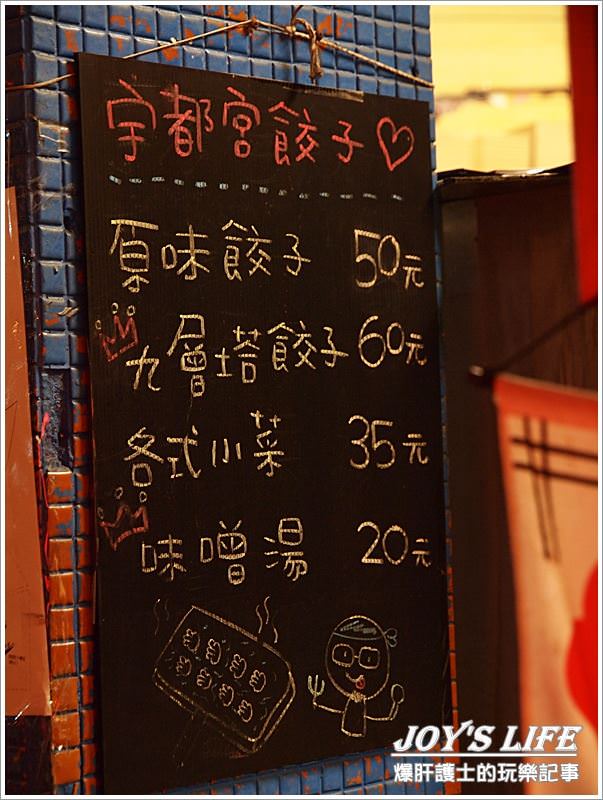 宇都宮餃子
原味餃子 50元
九層塔餃子 60元
各式小菜 35元
味噌湯 20元
JOY'S LIFE
爆肝護士的玩樂記事